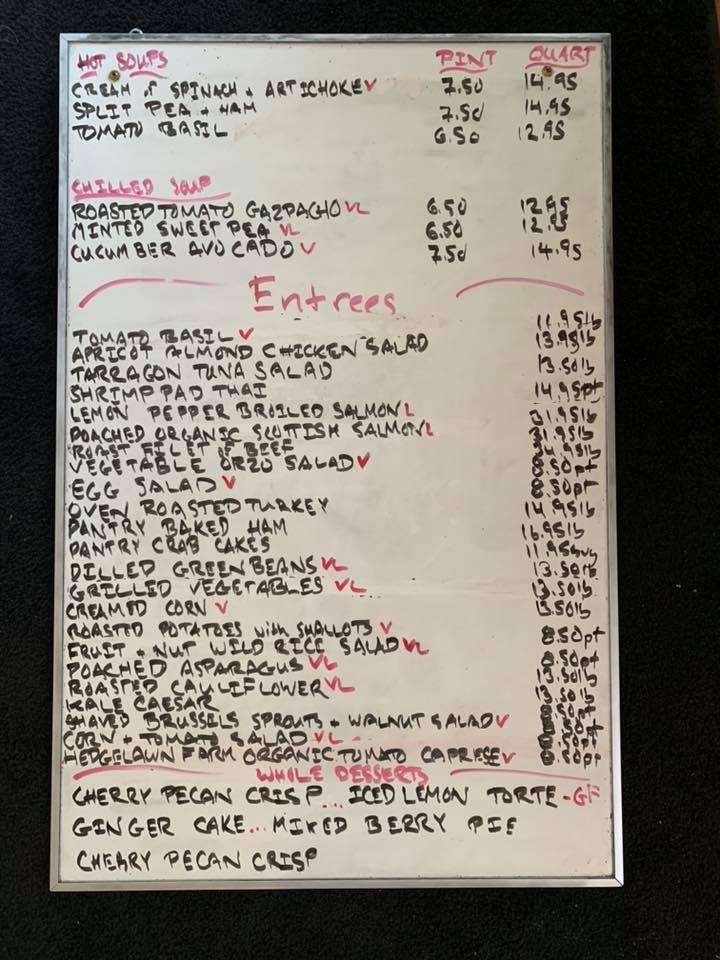 HOT SOUPS PINT QUART
CREAM of SPINACH + ARTICHOKE V 7.50 14.95
SPLIT PEA + HAM 7.50 14.95
TOMATO BASIL 6.50 12.95
CHILLED SOUP
ROASTED TOMATO GAZPACHO VL 6.50 12.95
MINTED SWEET PEA VL 6.50 12.95
CUCUMBER AVOCADO V 7.50 14.95
Entrees
TOMATO BASIL V 11.95lb
APRICOT ALMOND CHICKEN SALAD 13.95lb
TARRAGON TUNA SALAD 13.50lb
SHRIMP PAD THAI 14.95pt
LEMON PEPPER BROILED SALMON L 31.95lb
POACHED ORGANIC SCOTTISH SALMON L 31.95lb
ROAST FILET of BEEF
VEGETABLE ORZO SALAD V 8.50pt
EGG SALAD V 8.50pt
OVEN ROASTED TURKEY 14.95lb
PANTRY BAKED HAM 16.95lb
PANTRY CRAB CAKES
DILLED GREEN BEANS VL 13.50lb
GRILLED VEGETABLES VL 13.50lb
CREAMED CORN V 13.50lb
ROASTED POTATOES with SHALLOTS V 8.50pt
FRUIT + NUT WILD RICE SALAD VL 8.50pt
POACHED ASPARAGUS VL 13.50lb
ROASTED CAULIFLOWER VL 13.50lb
KALE CAESAR 8.50pt
SHAVED BRUSSELS SPROUTS + WALNUT SALAD V 8.50pt
CORN + TOMATO SALAD VL 8.50pt
HEDGELAWN FARM ORGANIC TOMATO CAPRESE V 8.50pt
WHOLE DESSERTS
CHERRY PECAN CRISP... ICED LEMON TORTE -GF
GINGER CAKE... MIXED BERRY PIE
CHERRY PECAN CRISP